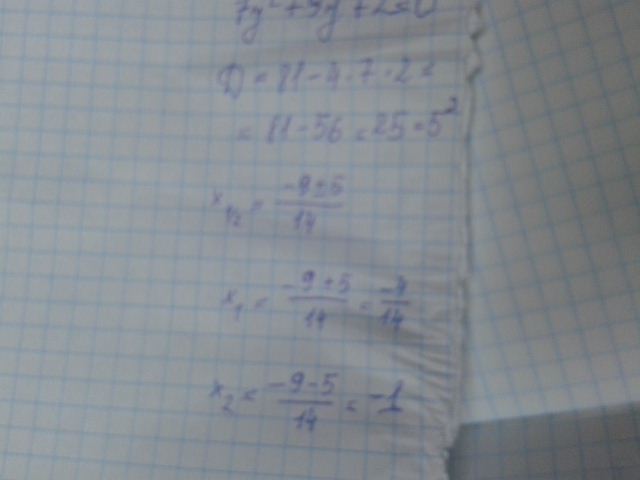 7y² + 9y + 2 = 0
D = 81 - 4 · 7 · 2 =
= 81 - 56 = 25 = 5²
x₁/₂ = (-9 ± 5)/14
x₁ = (-9 + 5)/14 = -4/14
x₂ = (-9 - 5)/14 = -1